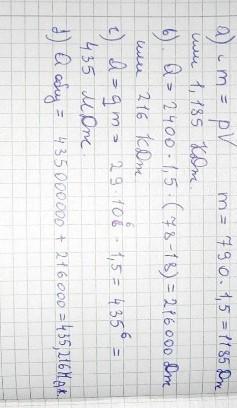 а) m = ρV   m = 790·1,5 = 1185 Дж
или 1,185 КДж.
b) Q = 2400·1,5·(78-18) = 216000 Дж
или 216 КДж
c) Q = qm = 29·10⁶·1,5 = 435⁶ =
435 МДж.
d) Q общ = 435000000 + 216000 = 435,216 МДж.